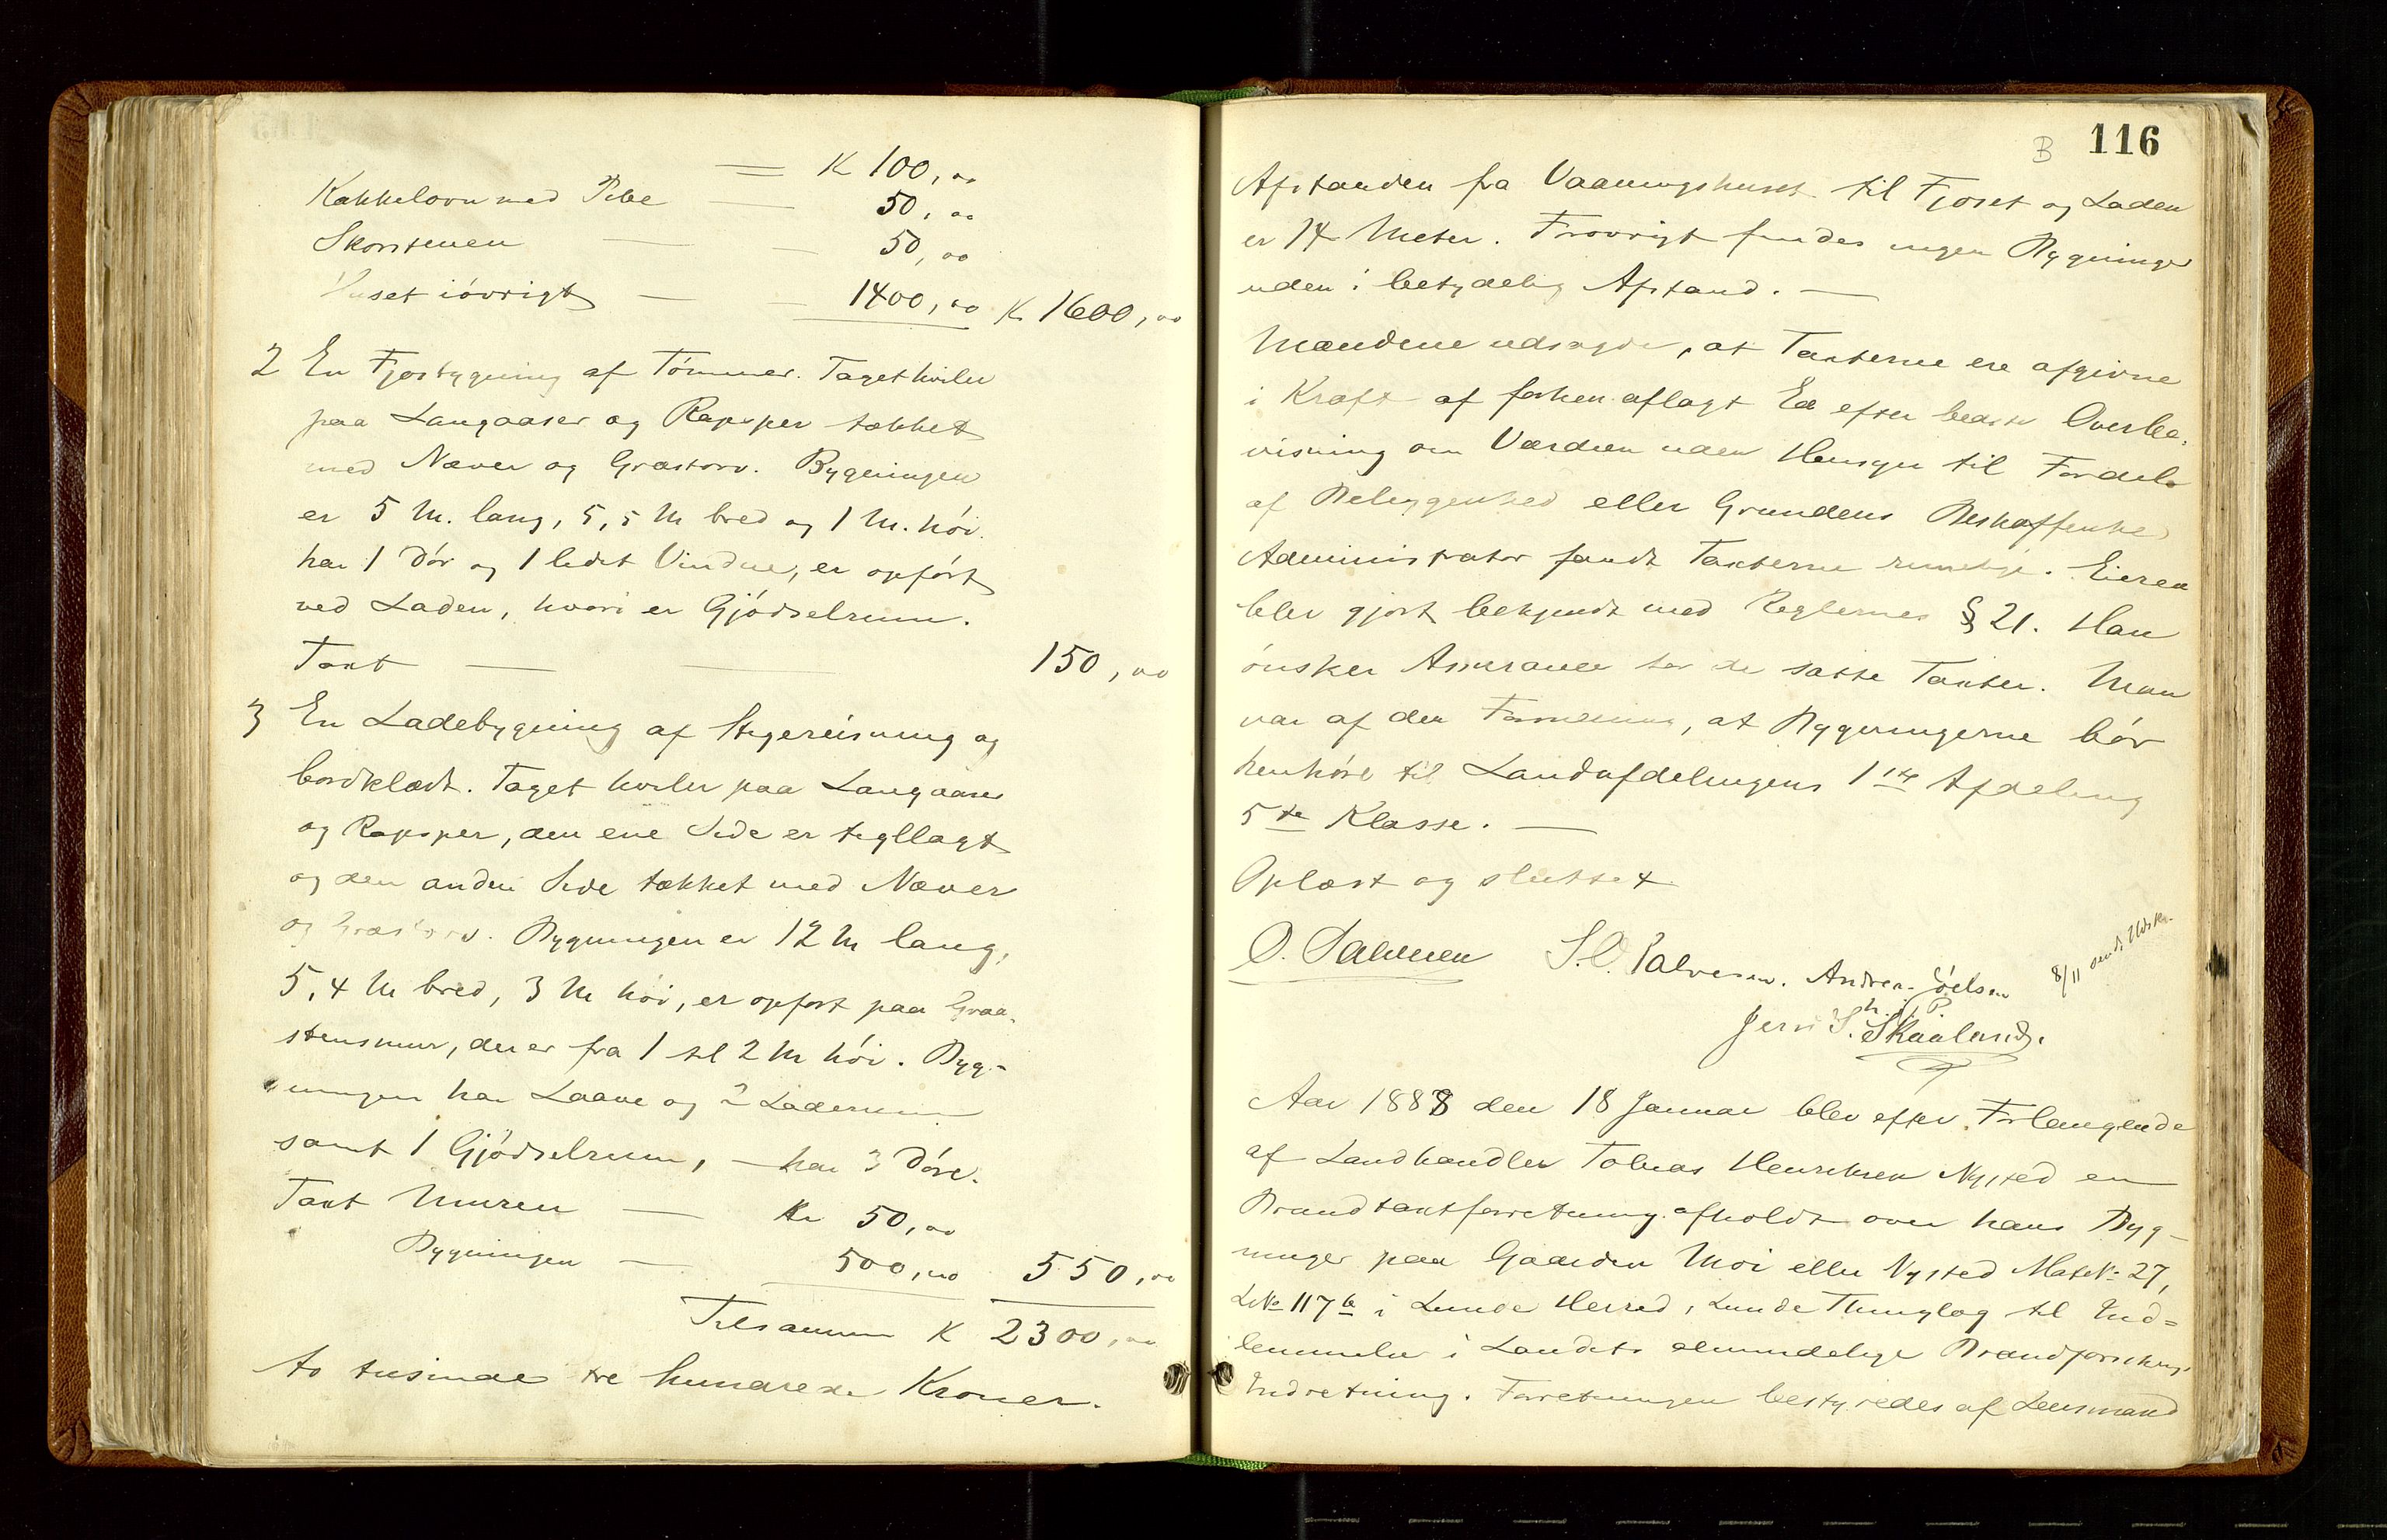 K 100,00
Kakkelovn med Pibe — 50,00
Skorstenen — — 50,00
Huset iövrigt — — 1400,00 K 1600,00
2 En Fjosbygning af Tömmer. Taget hviler
paa Langaaser og Rapsper tækket
med Næver og Græstorv. Bygningen
er 5 M. lang, 5,5 M bred og 1 M. höi.
har 1 Dör og 1 ledet Vindue, er opfört
ved Laden, hvori er Gjödselrum.
Taxt — — 150,00
3 En Ladebygning af Stegereisning og
bordklædt. Taget hviler paa Langaaser
og Rapsper, den ene Side er tegllagt
og den anden Side tækket med Næver
og Græstorv. Bygningen er 12 M lang,
5,4 M bred, 3 M höi, er opfört paa Graa-
stensmur, der er fra 1 til 2 M höi. Byg-
ningen har Laave og 2 Laderum
samt 1 Gjödselrum, — har 3 Döre.
Taxt Muren — Kr 50,00
Bygningen — 500,00 550,00
Tilsammen K 2300,00
to tusinde tre hundrede Kroner.
B 116
Afstanden fra Vaaningshuset til Fjoset og Laden
er 14 Meter. Forövrigt findes ingen Bygninger
uden i betydelig Afstand. —
Mændene udsagde, at Taxterne ere afgivne
i Kraft af forhen aflagt Ed efter bedste Overbe-
visning om Værdien uden Hensyn til Fordele
af Beliggenhed eller Grundens Beskaffenhed
Administrator fandt Taxterne rimelige. Eieren
blev gjort bekjendt med Reglernes § 21. Han
önsker Assurance for de satte Taxter. Man
var af den Formening, at Bygningerne bör
henhöre til Landafdelingens 1ste Afdeling
5te Klasse. —
Oplæst og sluttet
O. Salvesen S. O. Salvesen. Andreas Joelsen
m. f. P.
8/11 sendt Udskr.
Jens S. Skaaland.
Aar 1888 den 18 Januar blev efter Forlangende
af Landhandler Tobias Henriksen Nysted en
Brandtaxtforretning afholdt over hans Byg-
ninger paa Gaarden Moi eller Nysted Mat№ 27,
L№ 117b i Lunde Herred, Lunde Thinglag til Ind=
lemmelse i Landets almindelige Brandforsikrings
Indretning. Forretningen bestyredes af Lensmand